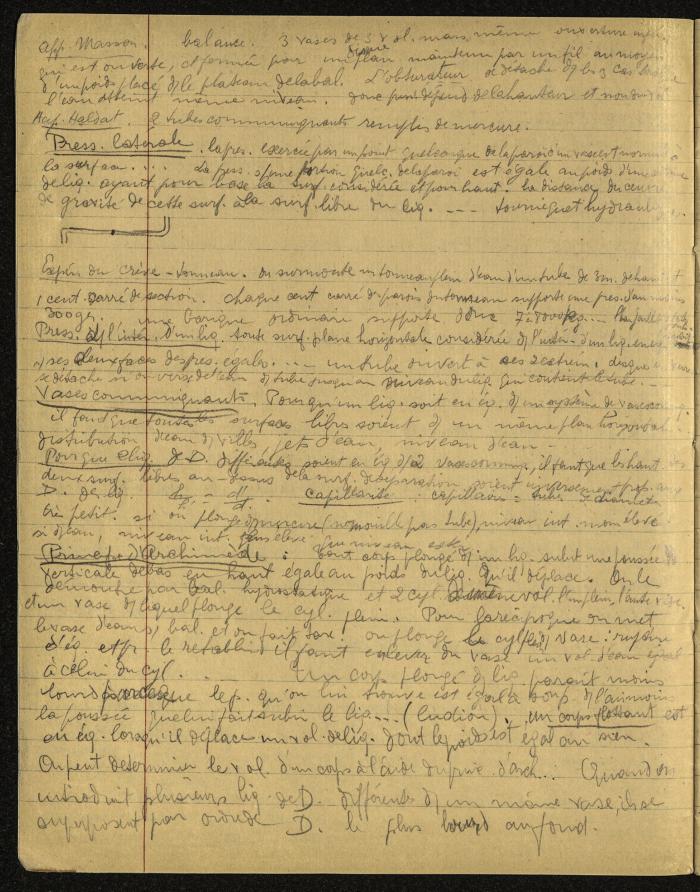 App. Masson. balance. 3 vases de 3 vol. mais même ouverture
qui est ouverte, et formée par un plan maintenu par un fil au moyen
d'un poids placé d/ le plateau de la bal. L'obturateur se détache d/ les 3 cas lorsque
l'eau atteint même niveau. donc dépend de la hauteur et non
App. Haldat. 2 tubes communiquants remplis de mercure.
Press. latérale. la pres. exercée par un point quelconque de la paroi d'un vase est normale à
la surface.... La press. portion de la paroi est égale au poids d'une
de liq. ayant pour base la surf. considérée et pour haut. la distance du centre
de gravité de cette surf. à la surf. libre du liq. --- tourniquet hydraulique
Expér. du crève-tonneau. on surmonte un tonneau plein d'eau d'un tube de 3m. de haut et
1 cent. carré de section. chaque cent carré de parois du tonneau supporte une pres. d'au moins
300 gr. une barique ordinaire supporte donc
Press. d/ l'intér. d'un liq. toute surf. plane horizontale considérée d/ l'intér. d'un liq.
ses deux faces des pres. égales. --- un tube ouvert à ses 2 extrém. disque
se détache si on verse de l'eau d/ tube jusqu'au niveau du liq. qui contient le tube. -
Vases communiquants. Pour qu'un liq. soit en éq. d/ un système de vases
il faut que toutes les surfaces libres soient d/ un même plan horizontal
distribution d'eau d/ villes jets d'eau, niveau d'eau -
Pour que 2 liq. de D. différentes soient en éq. d/ 2 vases comm. il faut que les haut. des
deux surf. libres au-dessus de la surf. de séparation soient inversement prop. aux
D. des liq. Capillarité : capillaire = tube diamètre
très petit. si on plonge d/ mercure (ne mouille pas tube), niveau int. moins élevé
si d/ eau, niveau int. plus élevé
Principe d'Archimède : Tout corps plongé d/ un liq. subit une poussée
verticale de bas en haut égale au poids du liq. qu'il déplace. On le
démontre par bal. hydrostatique et 2 cyl. de même vol. l'un plein, l'autre vide.
et un vase d/ lequel plonge le cyl. plein. Pour la réciproque on met
le vase d'eau s/ bal. et on fait tare. on plonge le cyl. d/ vase : rupture
d'éq. et pr le rétablir il faut enlever du vase un vol. d'eau égal
à celui du cyl. Un corps plongé d/ liq. paraît moins
lourd parce que le p. qu'on lui trouve est égal à son p. d/ l'air moins
la poussée que lui fait subir le liq... (ludion). un corps flottant est
en éq. lorsqu'il déplace un vol. de liq. dont le poids est égal au sien.
On peut déterminer le vol. d'un corps à l'aide du princ. d'arch... Quand on
introduit plusieurs liq. de D. différentes d/ un même vase, ils se
superposent par ordre D. le plus lourd au fond.